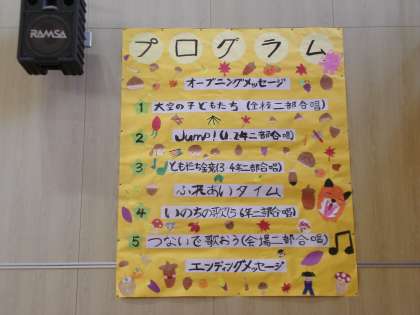 RAMSA
プログラム
オープニングメッセージ
1 大空の子どもたち (全校二部合唱)
2 Jump! (1.2年二部合唱)
3 ともだち音楽(3.4年二部合唱)
ふれあいタイム
4 いのちの歌(5.6年二部合唱)
5 つないで歌おう(会場二部合唱)
エンディングメッセージ